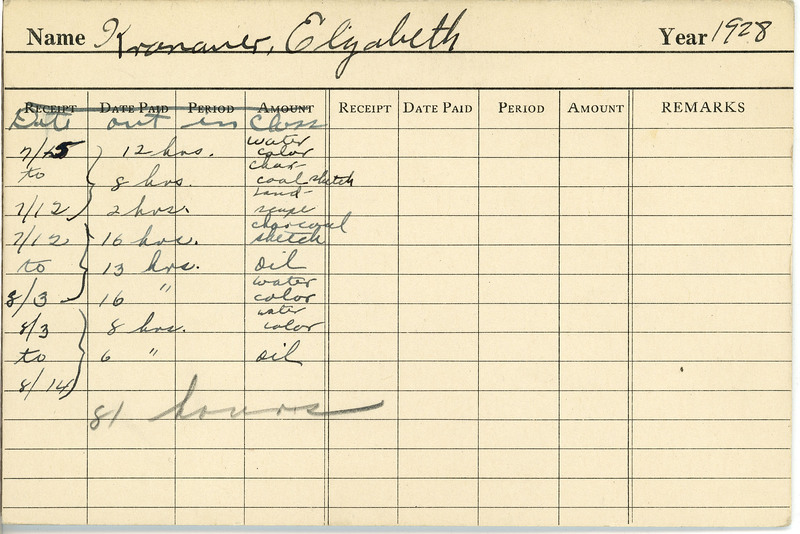 Name Kronauer, Elizabeth Year 1928
RECEIPT DATE PAID PERIOD AMOUNT RECEIPT DATE PAID PERIOD AMOUNT REMARKS
Date out in Class
7/5 12 hrs. water color
to 8 hrs. charcoal sketch
7/12 2 hrs. Land-scape
7/12 16 hrs. charcoal sketch
to 13 hrs. oil
8/3 16 " water color
8/3 8 hrs. water color
to 6 " oil
8/14
81 hours